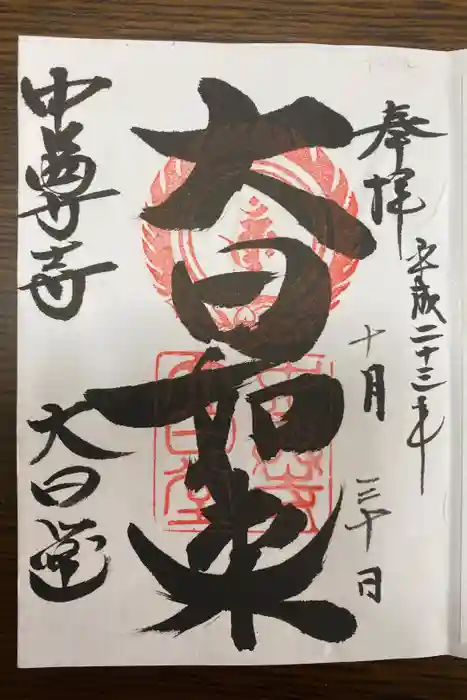 奉拝
平成二十三年
十月 三十日
大日如来
中尊寺 大日堂